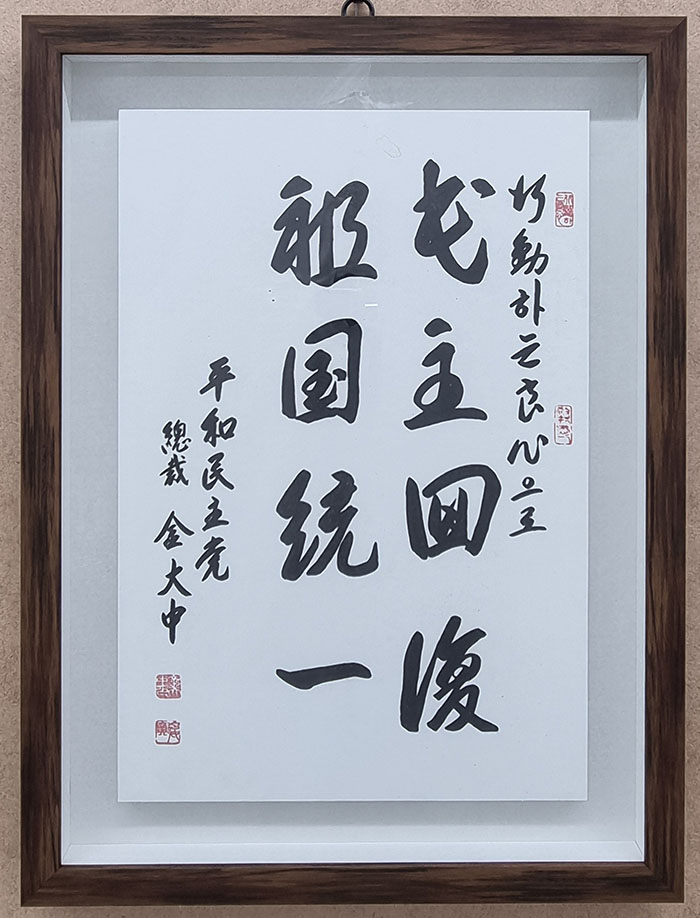 行動하는良心으로
民主回復
祖国統一
平和民主党
總裁 金大中